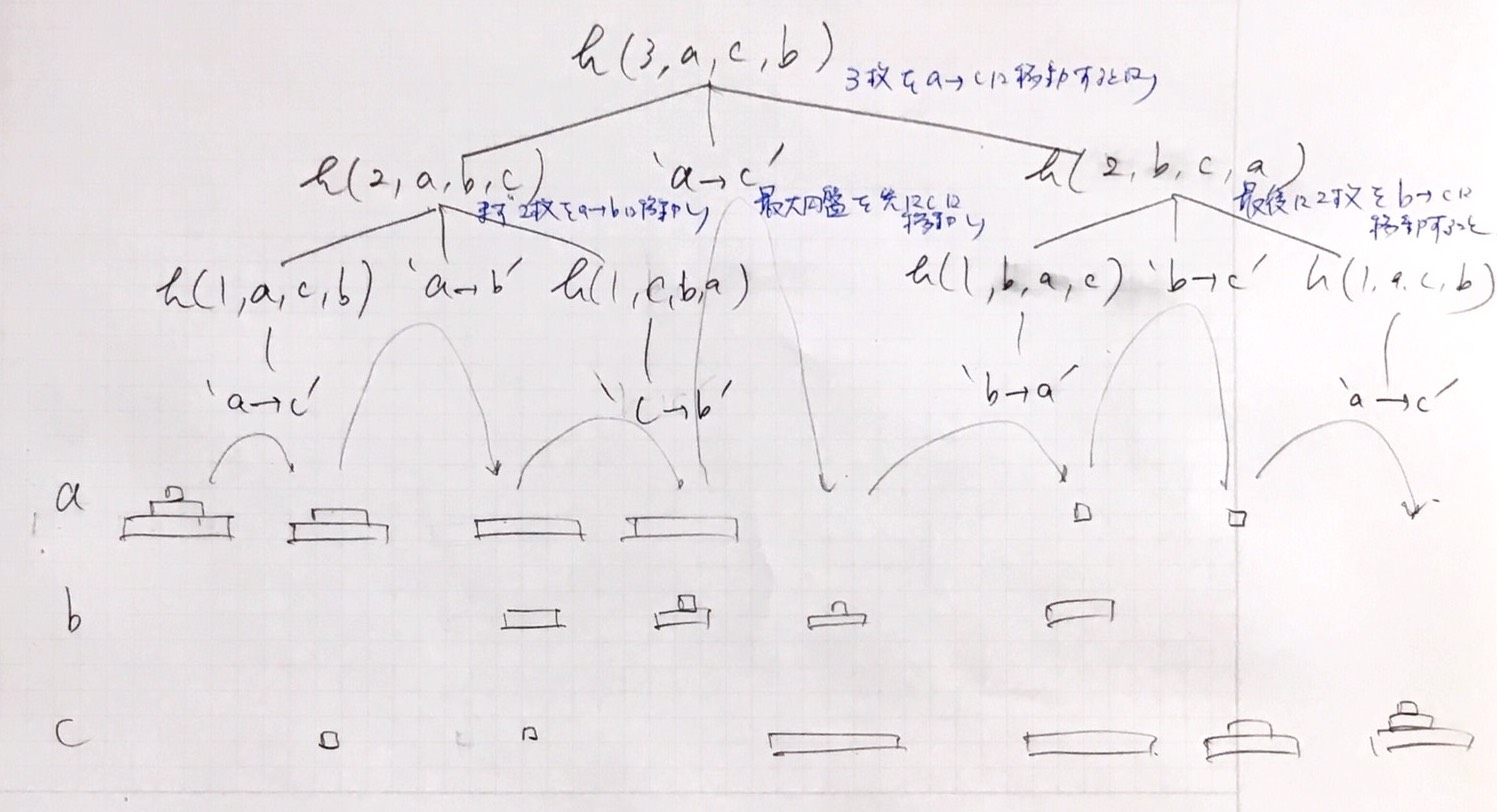 h(3,a,c,b)
3枚をa→cに移動するには
h(2,a,b,c)
'a→c'
h(2,b,c,a)
まず2枚をa→bに移動し
最大円盤を先にcに
移動し
最後に2枚をb→cに
移動すると
h(1,a,c,b) 'a→b' h(1,c,b,a)
h(1,b,a,c) 'b→c' h(1,a,c,b)
'a→c'
'c→b'
'b→a'
'a→c'
a
b
c